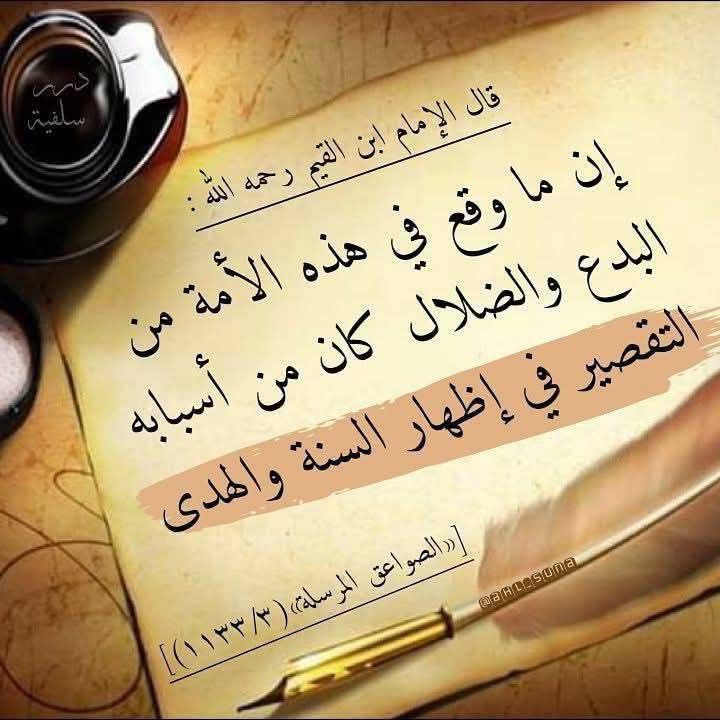 درر
سلفية
قال الإمام ابن القيم رحمه الله :
إن ما وقع في هذه الأمة من
البدع والضلال كان من أسبابه
التقصير في إظهار السنة والهدى
[«الصواعق المرسلة» (٣/ ١١٣٣)]
@aHL_SUna